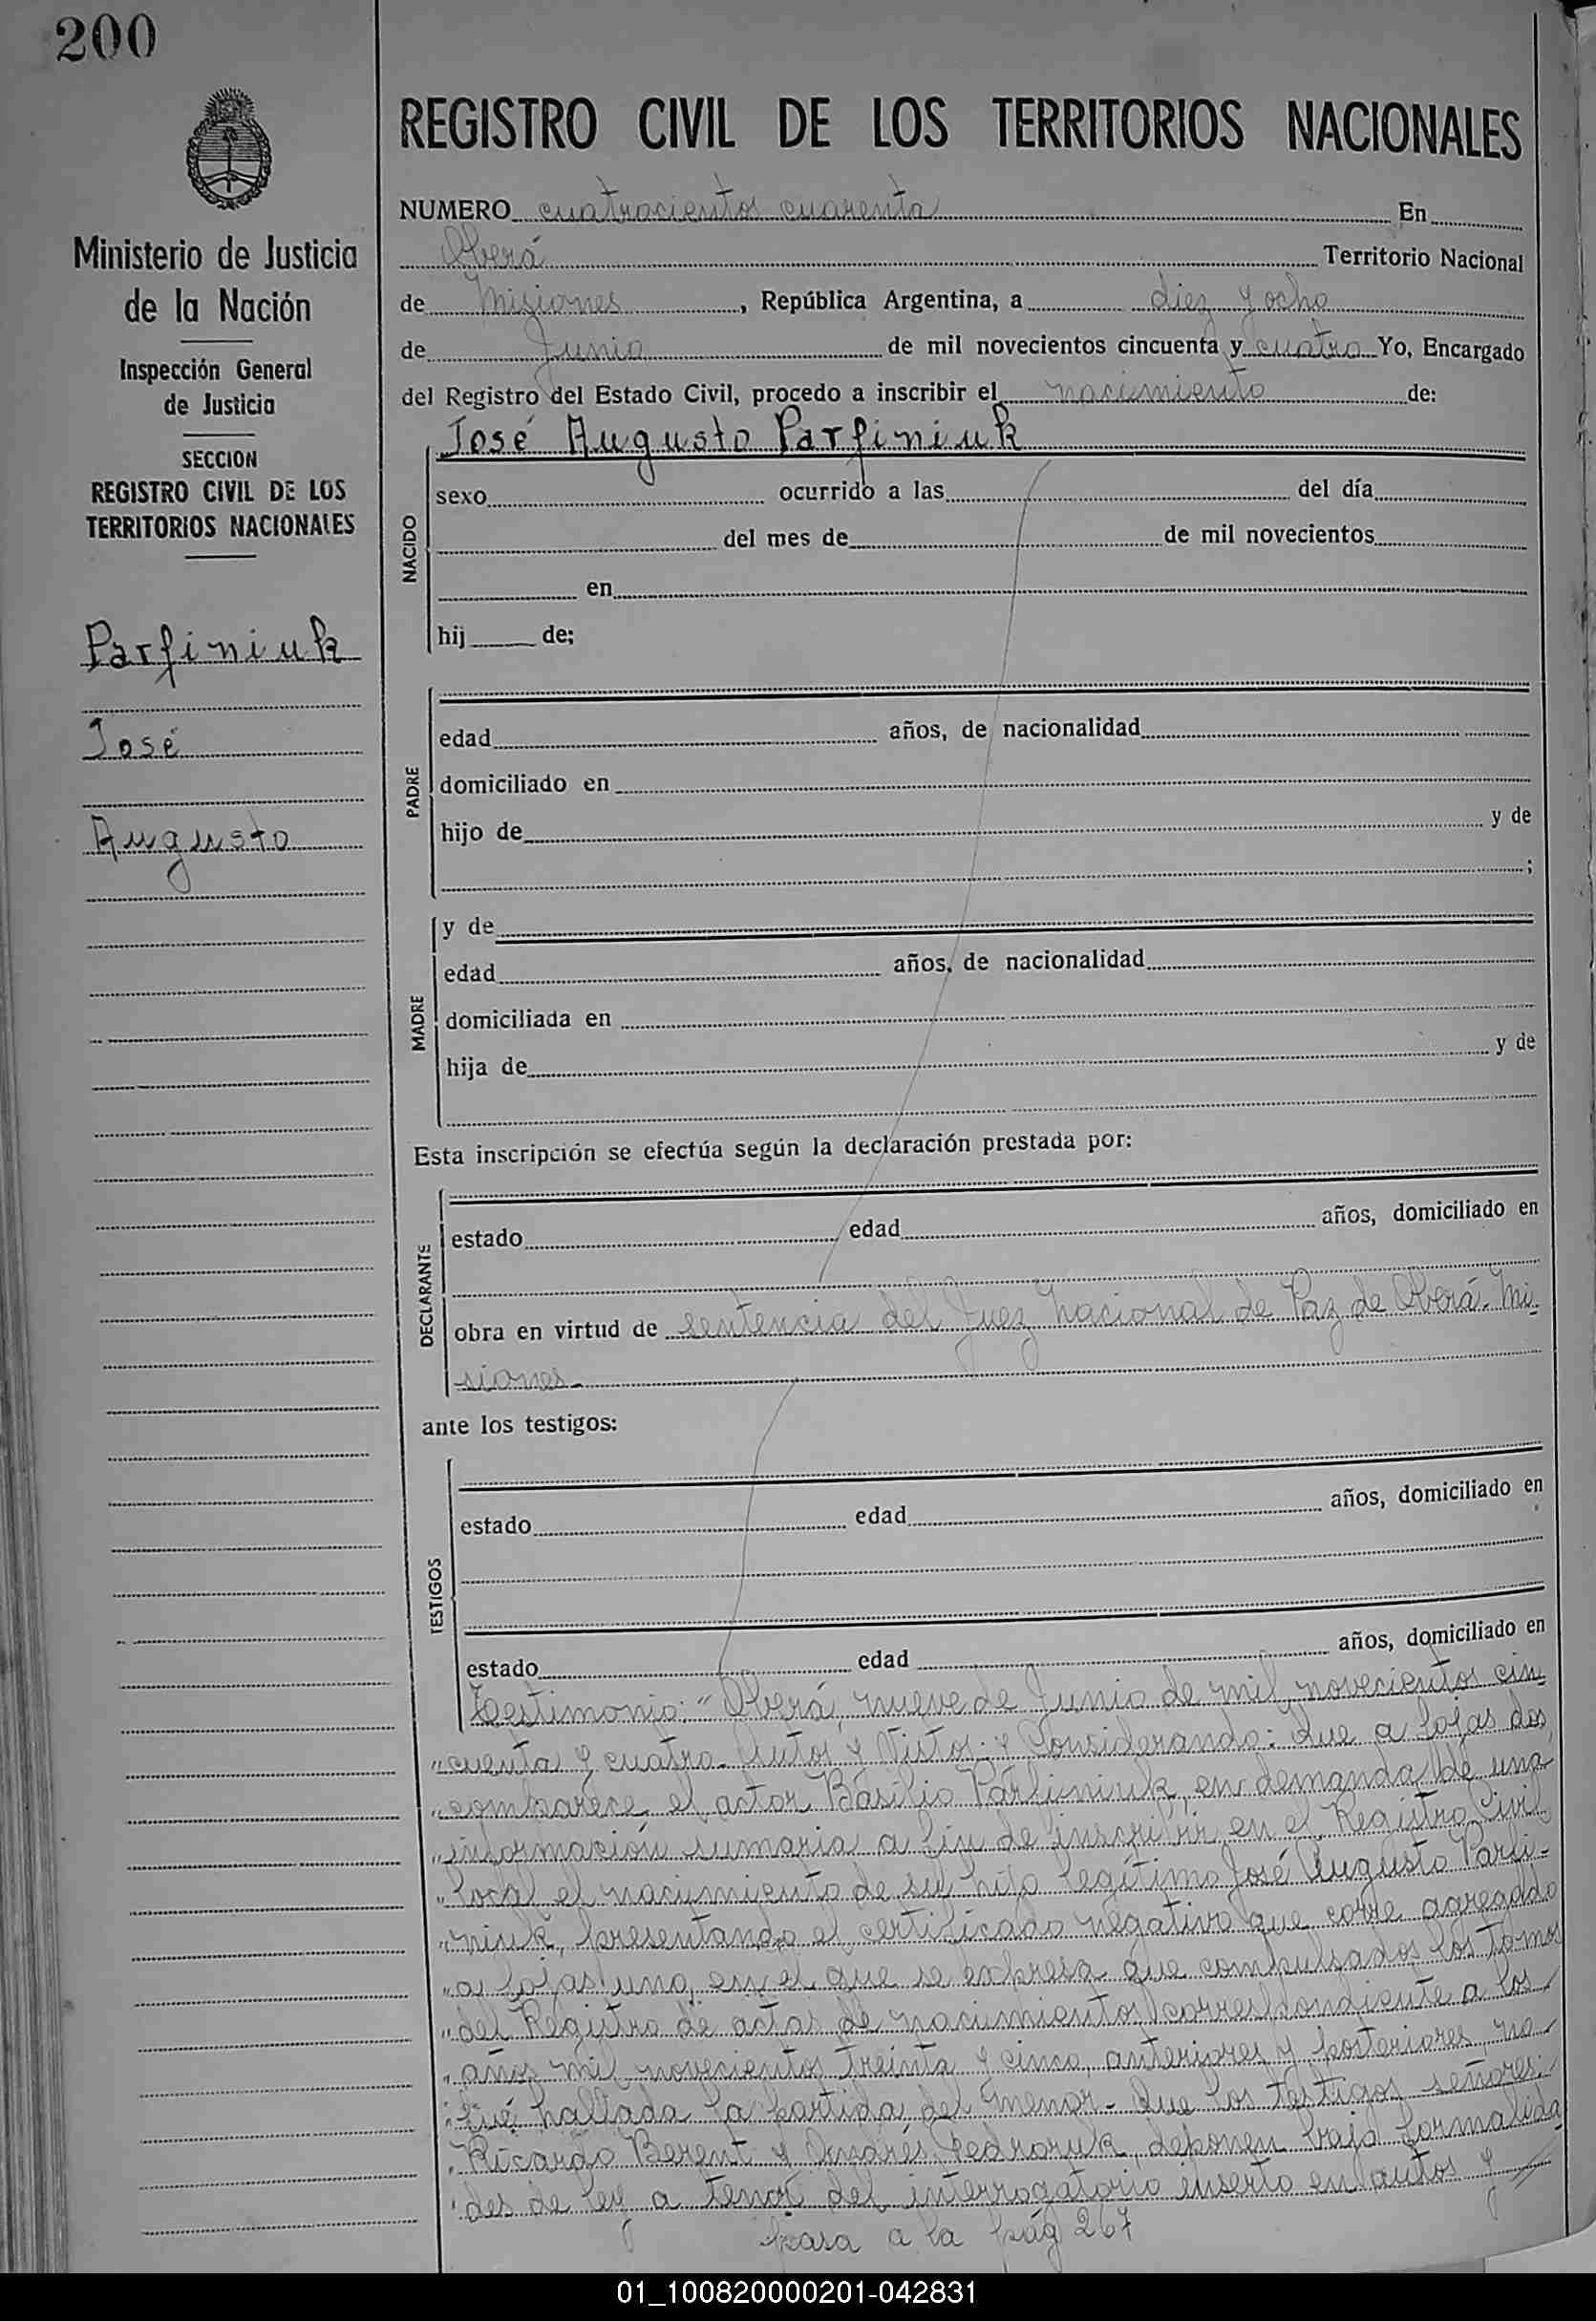 200
Ministerio de Justicia
de la Nación
Inspección General
de Justicia
SECCION
REGISTRO CIVIL DE LOS
TERRITORIOS NACIONALES
Parfiniuk
José
Augusto
REGISTRO CIVIL DE LOS TERRITORIOS NACIONALES
NUMERO cuatrocientos cuarenta En
Oberá Territorio Nacional
de Misiones, República Argentina, a diez y ocho
de Junio de mil novecientos cincuenta y cuatro Yo, Encargado
del Registro del Estado Civil, procedo a inscribir el nacimiento de:
José Augusto Parfiniuk
NACIDO
sexo ocurrido a las del día
del mes de de mil novecientos
en
hij de;
PADRE
edad años, de nacionalidad
domiciliado en
hijo de y de
;
MADRE
y de
edad años, de nacionalidad
domiciliada en
hija de y de
Esta inscripción se efectúa según la declaración prestada por:
DECLARANTE
estado edad años, domiciliado en
obra en virtud de sentencia del Juez Nacional de Paz de Oberá. Mi-
siones.
ante los testigos:
TESTIGOS
estado edad años, domiciliado en
estado edad años, domiciliado en
Testimonio: "Oberá, nueve de Junio de mil novecientos cin
"cuenta y cuatro. Autos y Vistos: y Considerando: Que a fojas dos
"comparece el actor Basilio Parfiniuk, en demanda de una
"información sumaria a fin de inscribir en el Registro Civil
"local el nacimiento de su hijo legítimo José Augusto Parfi-
"niuk, presentando el certificado negativo que corre agregado
"a fojas uno, en el que se expresa que compulsados los tomos
"del Registro de actas de nacimientos correspondiente a los
"años mil novecientos treinta y cinco, anteriores y posteriores, no
"fué hallada la partida del menor. Que los testigos señores:
"Ricardo Berent y Andrés Pedroruk, deponen bajo formalida
"des de ley a tenor del interrogatorio inserto en autos y
pasa a la pág 267
01_100820000201-042831